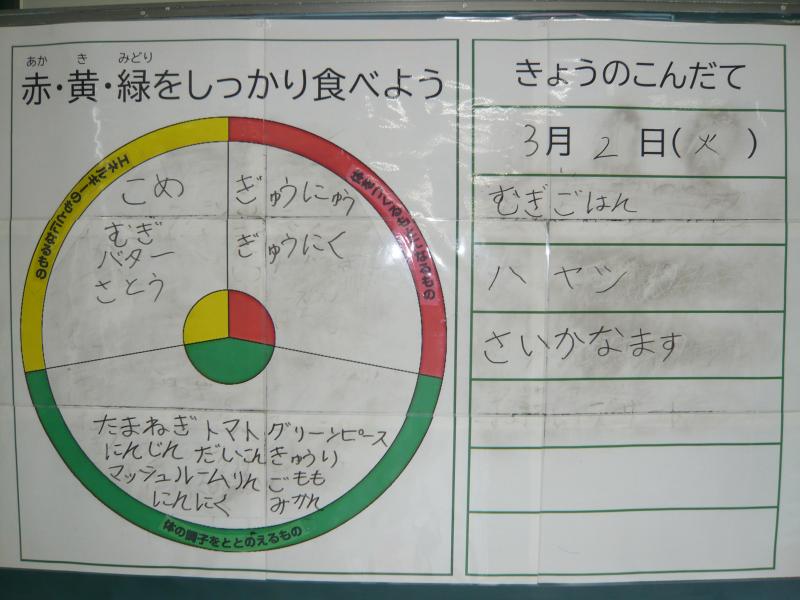 あか き みどり
赤・黄・緑をしっかり食べよう
エネルギーのもとになるもの
こめ
むぎ
バター
さとう
体をつくるもとになるもの
ぎゅうにゅう
ぎゅうにく
たまねぎ トマト グリーンピース
にんじん だいこん きゅうり
マッシュルーム りんご もも
にんにく みかん
体の調子をととのえるもの
きょうのこんだて
3月 2 日(火)
むぎごはん
ハヤツ
さいかなます